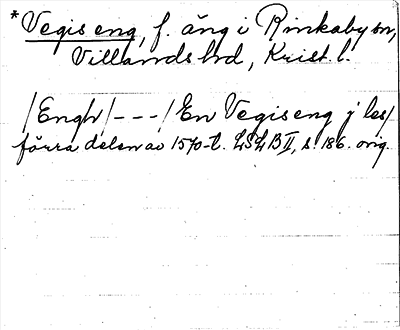 *Vegis eng, f. äng i Rinkaby sn,
Villands hd, Krist. l.
/Engh/ - - - / En Vegiseng j les/
förra delen av 1570-t. LSLB II, s. 186. orig.